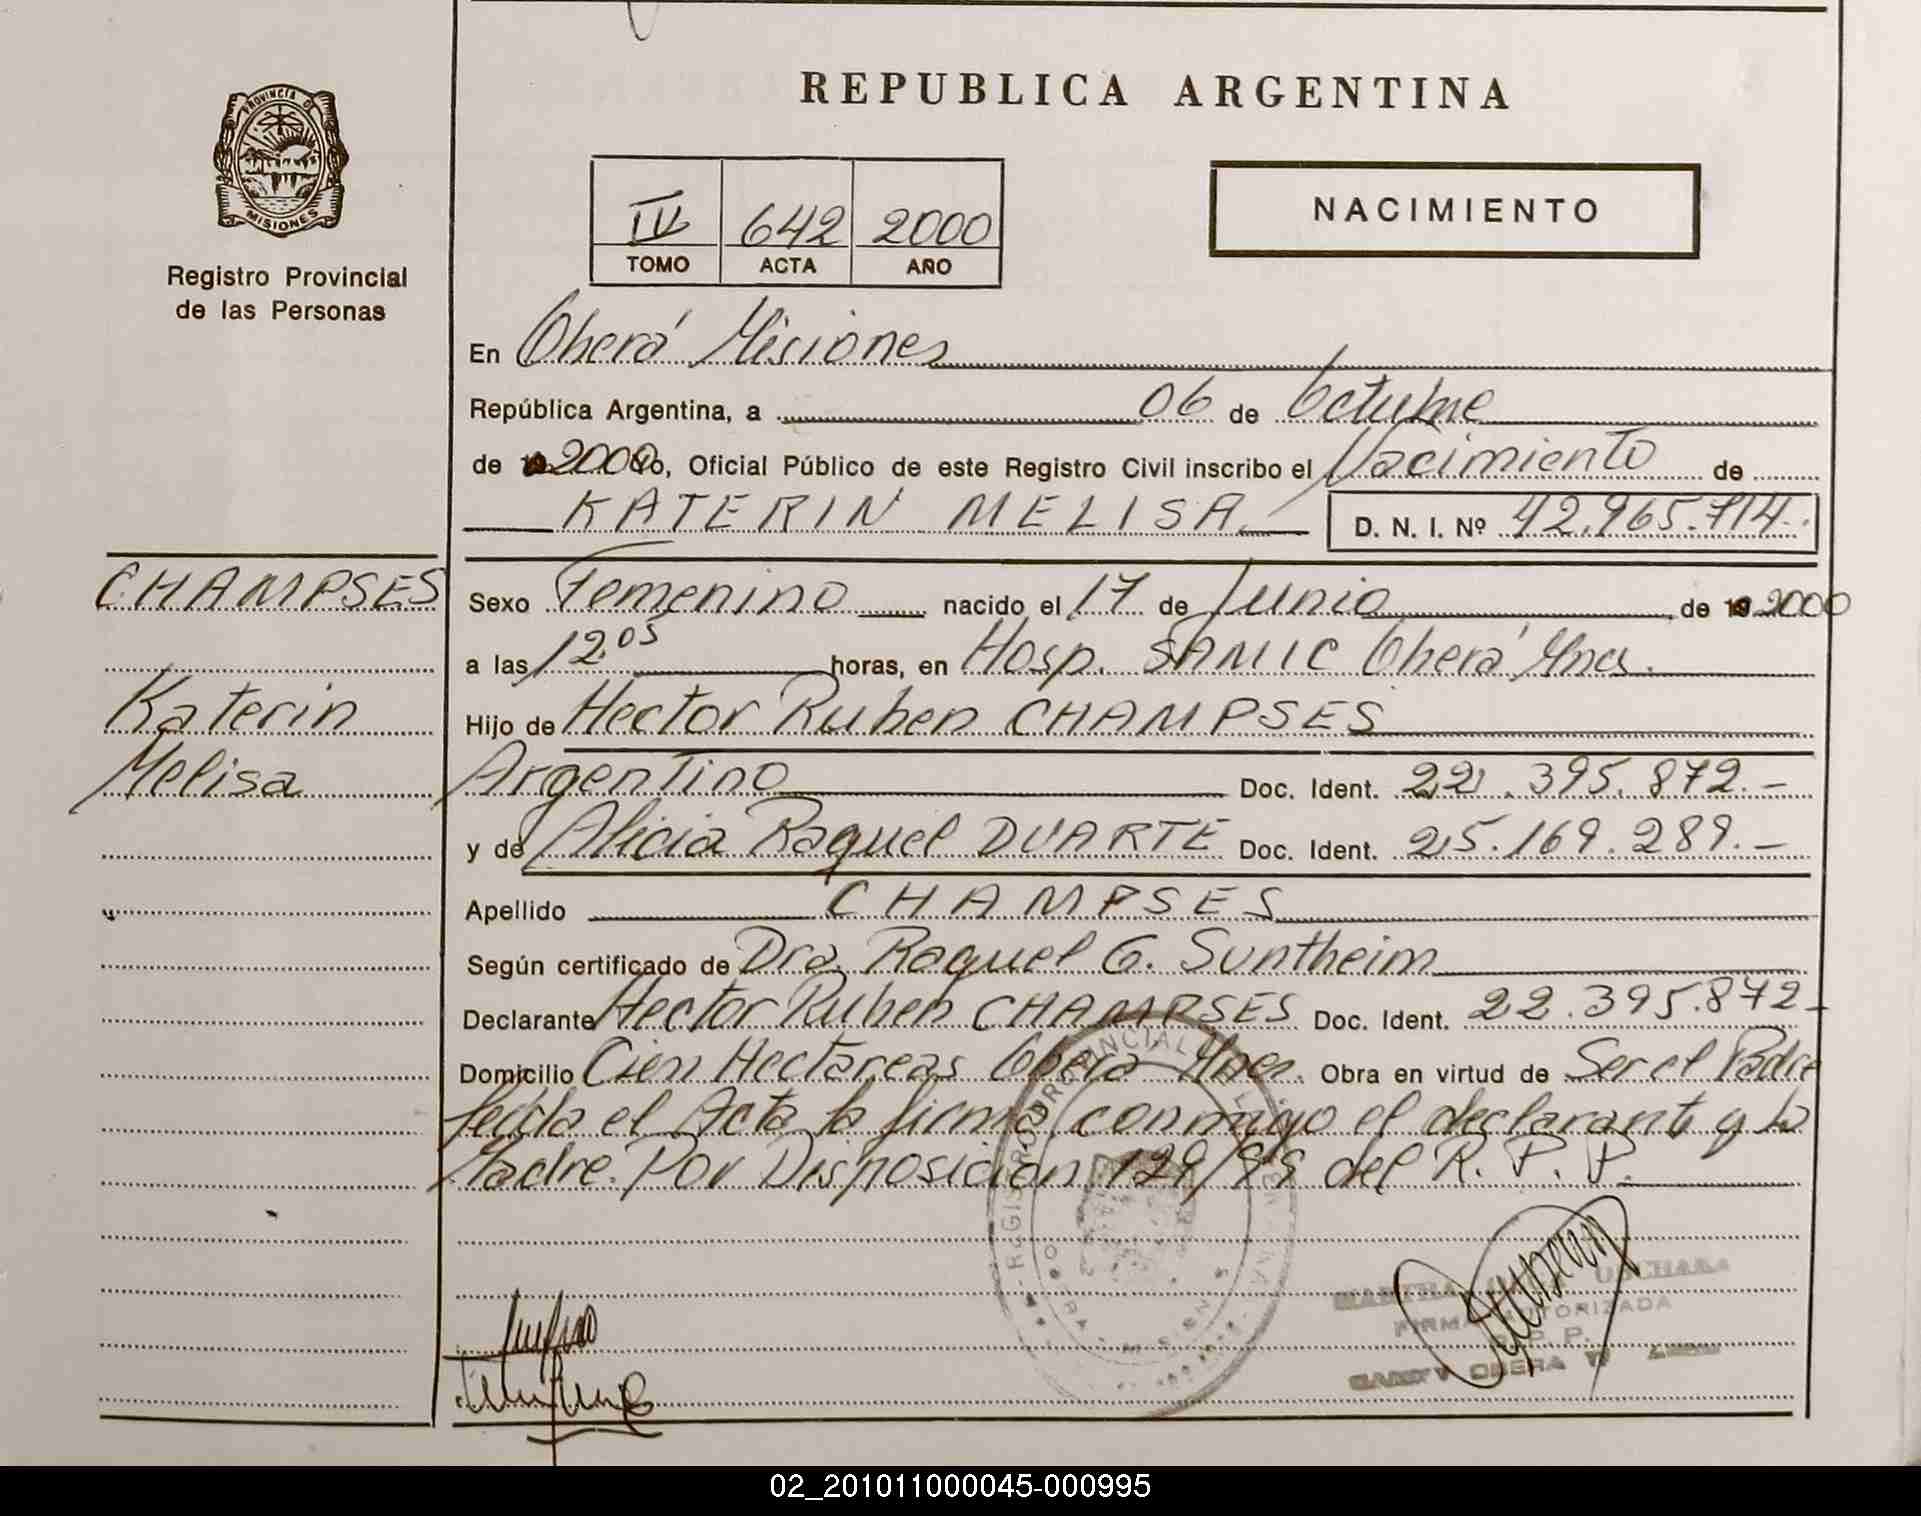 REPUBLICA ARGENTINA
PROVINCIA DE
MISIONES
Registro Provincial
de las Personas
IV 642 2000
TOMO ACTA AÑO
NACIMIENTO
En Oberá Misiones
República Argentina, a 06 de Octubre
de 2000 Yo, Oficial Público de este Registro Civil inscribo el Nacimiento de
KATERIN MELISA. D. N. I. Nº 42.965.714.
CHAMPSES
Katerin
Melisa
Sexo Femenino nacido el 17 de Junio de 19 2000
a las 12.05 horas, en Hosp. SAMIC Oberá Mnes.
Hijo de Hector Ruben CHAMPSES
Argentino Doc. Ident. 22.395.872.-
y de Alicia Raquel DUARTE Doc. Ident. 25.169.289.-
Apellido CHAMPSES
Según certificado de Dra. Raquel G. Suntheim
Declarante Hector Ruben CHAMPSES Doc. Ident. 22.395.872-
Domicilio Cien Hectareas Obera Mnes. Obra en virtud de Ser el Padre
leida el Acta la firma conmigo el declarante y la
Madre. Por Disposición 129/99 del R. P. P.
MARTHA
FIRMA AUTORIZADA
R. P. P.
OBERA
02_201011000045-000995